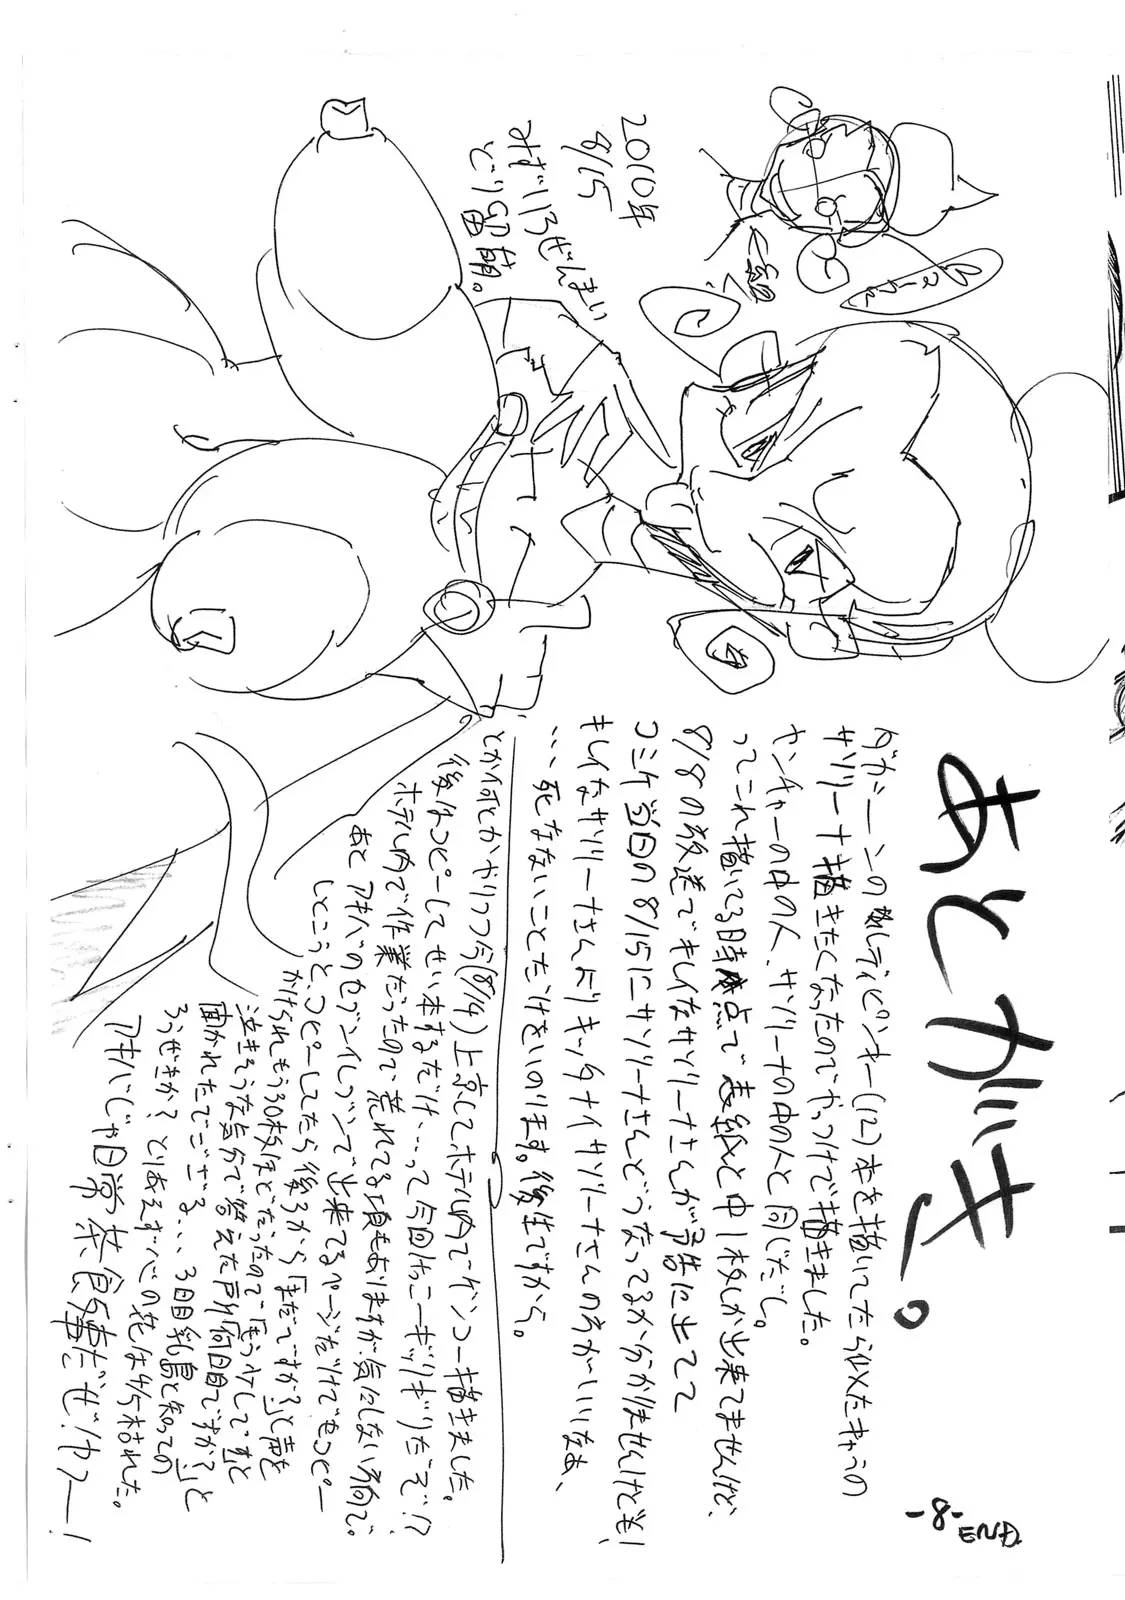 あとがき。
ダカーンの娘レディピンキー(12)本を描いてたら似たキャラの
サソリーナ描きたくなったのでやっつけで描きました。
ヤンチャーの中の人、サソリーナの中の人と同じだし。
ってこれ描いてる時点で表紙と中1枚しか出来てませんけど、
8/8の放送でキレイなサソリーナさんが予告に出てて
コミケ当日の8/15にサソリーナさんどうなってるか分かりませんけども、
キレイなサソリーナさんよりキッタナイサソリーナさんの方がいいなぁ、
…死なないことだけをいのります。後生ですから。
とか何とかやりつつ今(8/14)上京してホテル内でゲンコー描きました。
後はコピーしてせい本するだけ…って今回けっこーギッリギリだぞ!?
ホテル内で作業だったので荒れてる頁もありますが気にしない方向で。
あとアキバのセブンイレブンで出来てるページだけでもコピー
しとこうと、コピーしてたら後ろから「まだですか?」と声を
かけられもう30枚ほどだったので「もう少しです」と
泣きそうな気分で答えた所「何日目ですか?」と
聞かれたでござる…3日目乳島と知っての
ろうぜきか? とりあえず心の花は枯れた。
アキバじゃ日常茶飯事だぜ!ヤフー!
2010年
8/15
みずいろぜんまい
-8-
END